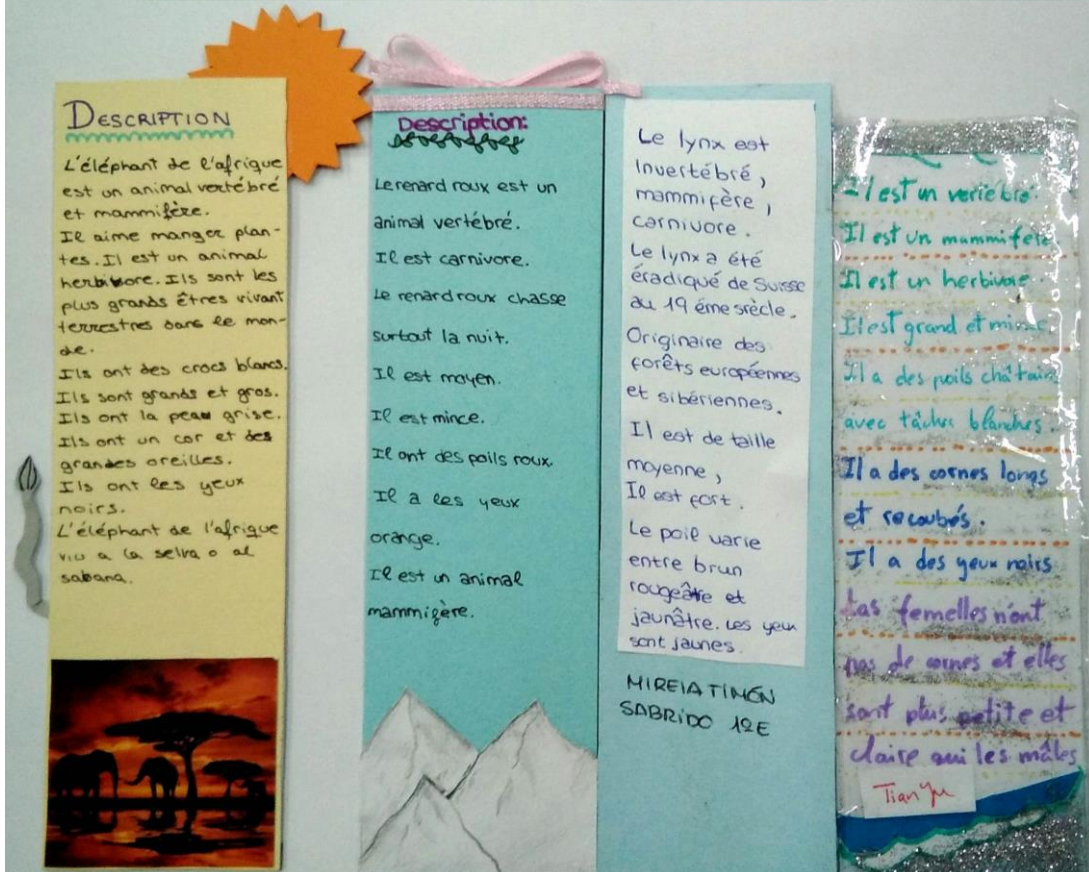 DESCRIPTION
L'éléphant de l'afrique
est un animal vertébré
et mammifère.
Il aime manger plan-
tes. Il est un animal
herbivore. Ils sont les
plus grands êtres vivant
terrestres dans le mon-
de.
Ils ont des crocs blancs.
Ils sont grands et gros.
Ils ont la peau grise.
Ils ont un cor et des
grandes oreilles.
Ils ont les yeux
noirs.
L'éléphant de l'afrique
viu a la selva o al
sabana.
Description:
Le renard roux est un
animal vertébré.
Il est carnivore.
Le renard roux chasse
surtout la nuit.
Il est moyen.
Il est mince.
Il ont des poils roux.
Il a les yeux
orange.
Il est un animal
mammifère.
Le lynx est
invertébré,
mammifère,
carnivore.
Le lynx a été
éradiqué de Suisse
au 19 éme srècle.
Originaire des
forêts européennes
et sibériennes.
Il est de taille
moyenne,
Il est fort.
Le poil varie
entre brun
rougeâtre et
jaunâtre. Les yeux
sont jaunes.
MIREIA TIMÓN
SABRIDO 12E
Il est un vertébré.
Il est un mammifère
Il est un herbivore.
Il est grand et mince.
Il a des poils châtains
avec tâches blanches.
Il a des cornes longs
et recoubés.
Il a des yeux noirs
Las femelles n'ont
pas de cornes et elles
sont plus petite et
claire qui les mâles
Tian Yu